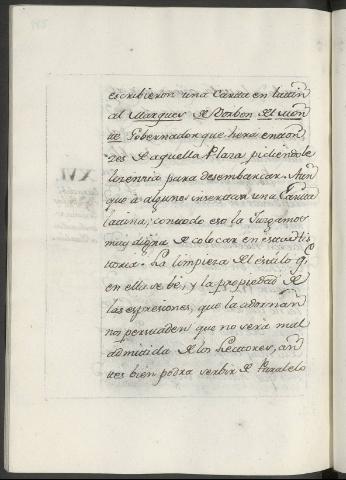 escribieron una Carta en latin
al Marques de Borbon del Mon
te Gobernador que hera enton
zes de aquella Plaza pidiendole
lizenzia para desembarcar. Aun
que a algunos insertar una Carta
latina; con todo eso la Juzgamos
muy digna de colocar en esta his
toria. La limpieza del estilo q.e
en ella se bé, y la propiedad de
las espresiones, que la adornan
nos persuaden que no será mal
admitida de los Lectores, an
tes bien podra serbir de Paralelo
XVI